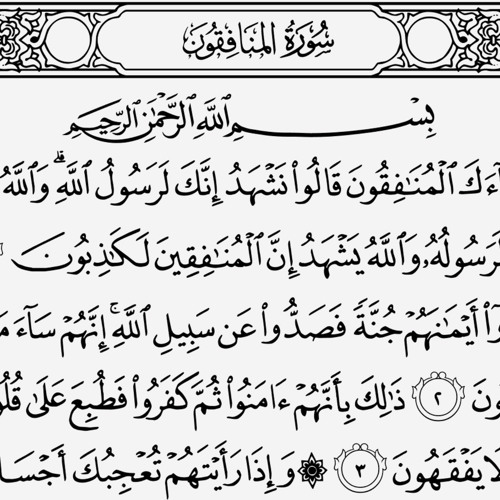 سُورَةُ المُنَافِقُون
بِسْمِ ٱللَّهِ ٱلرَّحْمَٰنِ ٱلرَّحِيمِ
ٱلْمُنَٰفِقُونَ قَالُوا۟ نَشْهَدُ إِنَّكَ لَرَسُولُ ٱللَّهِ ۗ وَٱللَّهُ
لَرَسُولُهُۥ وَٱللَّهُ يَشْهَدُ إِنَّ ٱلْمُنَٰفِقِينَ لَكَٰذِبُونَ
أَيْمَٰنَهُمْ جُنَّةً فَصَدُّوا۟ عَن سَبِيلِ ٱللَّهِ ۚ إِنَّهُمْ سَآءَ
٢ ذَٰلِكَ بِأَنَّهُمْ ءَامَنُوا۟ ثُمَّ كَفَرُوا۟ فَطُبِعَ عَلَىٰ
لَا يَفْقَهُونَ ٣ ۞ وَإِذَا رَأَيْتَهُمْ تُعْجِبُكَ